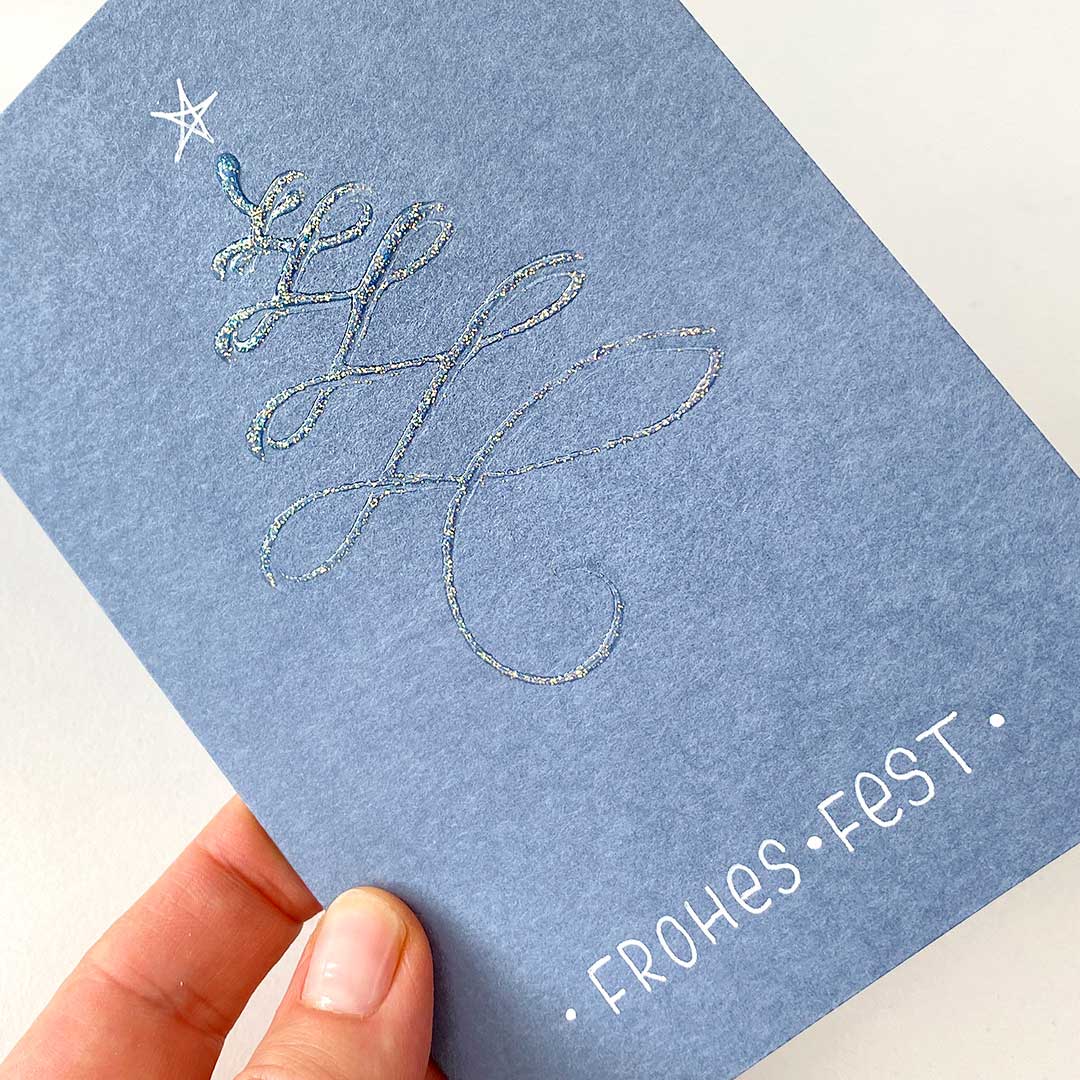 • FROHeS • FeST •